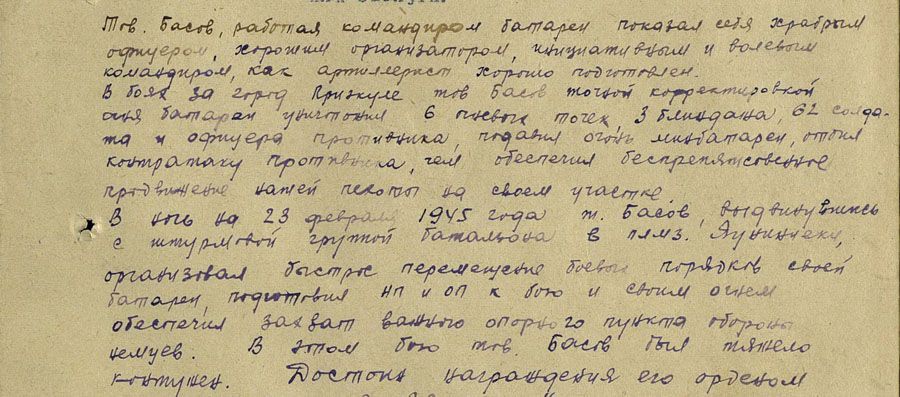 Тов. Басов, работая командиром батареи показал себя храбрым
офицером, хорошим организатором, инициативным и волевым
командиром, как артиллерист хорошо подготовлен.
В боях за город Приэкуле тов Басов точной корректировкой
огня батареи уничтожил 6 пулевых точек, 3 блиндажа, 62 солда-
та и офицера противника, подавил огонь минбатареи, отбил
контратаку противника, чем обеспечил беспрепятственное
продвижение нашей пехоты на своем участке
В ночь на 23 февраля 1945 года т. Басов, выдвинувшись
с штурмовой группой батальона в
организовал быстрое перемещение боевых порядков своей
батареи, подготовил НП и ОП к бою и своим огнем
обеспечил захват важного опорного пункта обороны
немцев. В этом бою тов. Басов был тяжело
контужен. Достоин награждения его орденом